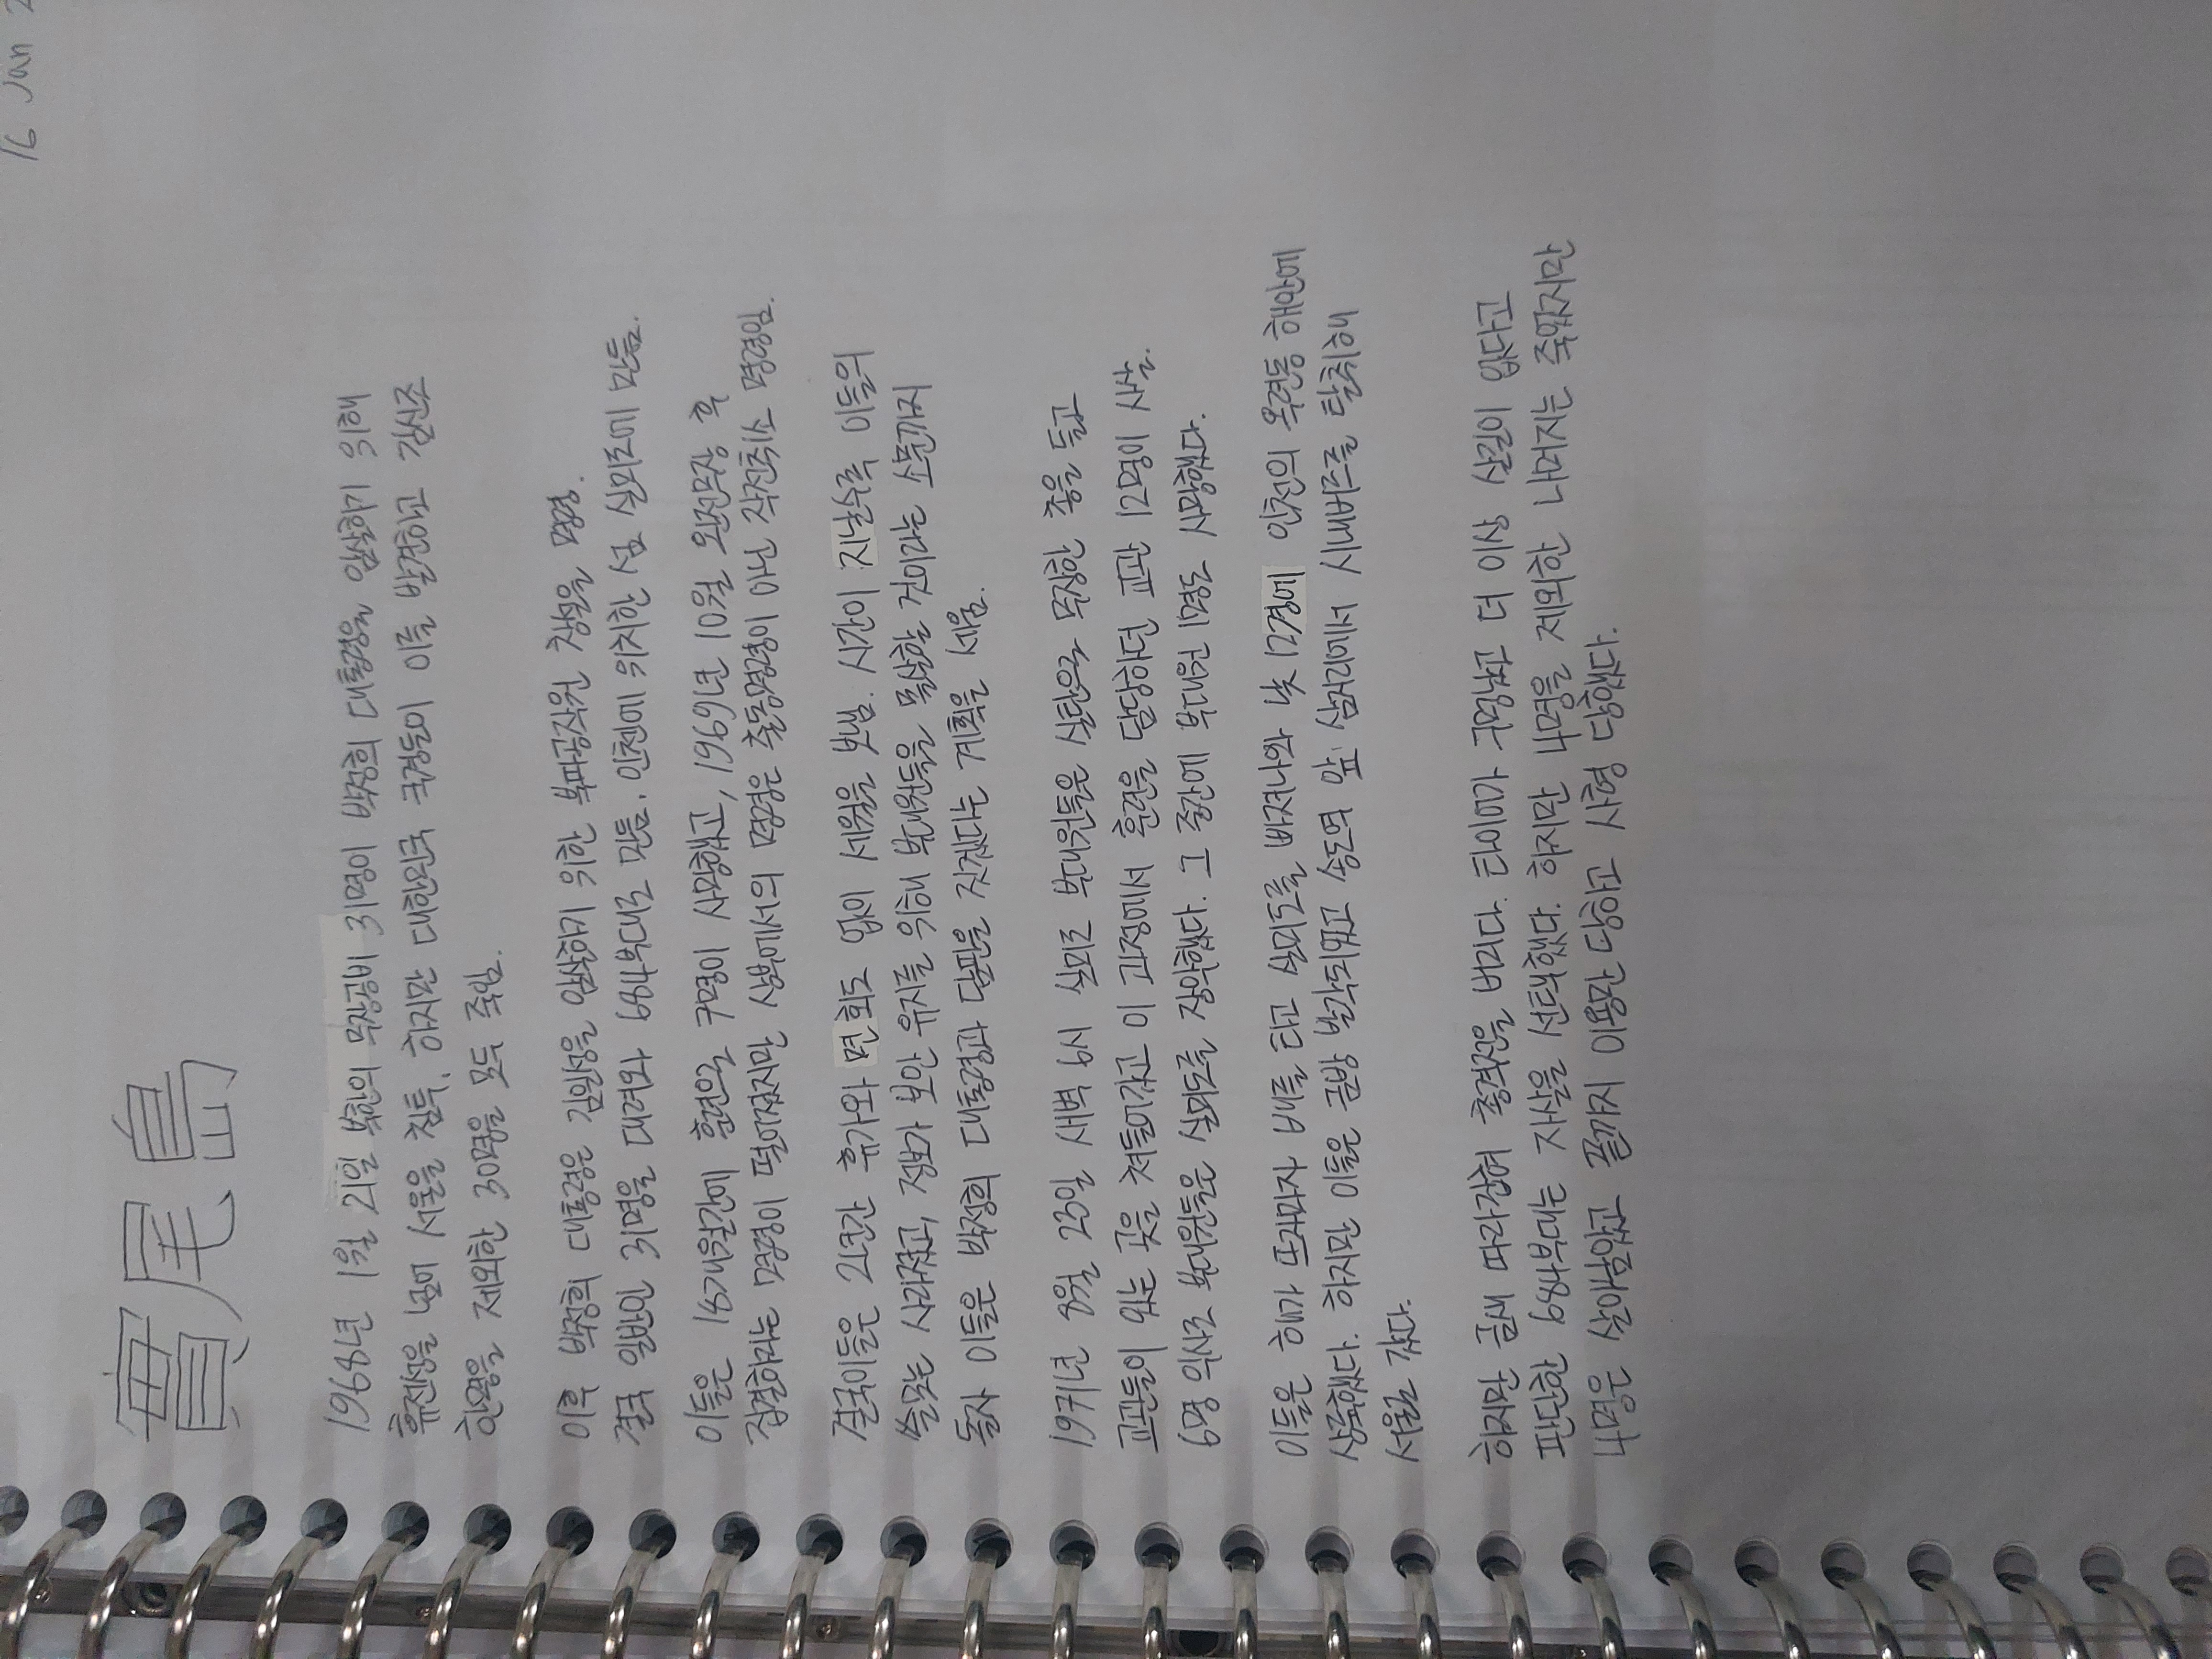 16 Jan 2
實尾島
1968년 1월 21일 북한의 무장공비 31명이 박정희 대통령을 암살하기 위해
휴전선을 넘어 서울을 침투. 하지만 대한민국 국군들이 이를 발견하고 김신조
한명을 제외한 30명을 모두 죽임.
이후 박정희 대통령은 김일성을 암살하기 위한 북파공작원 창설을 명령.
결국 일반인 31명을 데려와 684부대로 만듦. 인천에 위치한 섬 실미도에 만듦.
이들은 18개월간에 훈련으로 7명이 사망했고, 1969년 10월 완전무장 후
집결하라는 명령이 떨어졌지만 상부에서의 명령은 출동명령이 아닌 작전취소 명령임.
결국이들은 2년간 휴가와 면회도 없이 세월을 보냄. 시간이 지날수록 이들의
쓸모는 사라졌고, 정보가 보안 유지를 위해 부대원들을 몰살할 것이라는 소문까지
돌자 이들은 박정희 대통령과 담판을 짓겠다는 계획을 세움.
1971년 8월 23일 새벽 6시 실미도 부대원들은 실탄으로 무장한 총을 들고
교관들이 있는 곳을 쳐들어갔고 이 과정에서 훈련을 담당하던 교관 12명이 사살.
6명 익사로 부대원들은 실미도를 장악했다. 그 중간에 부대원 1명도 사망했다.
이들은 해가 뜨자마자 배를 타고 실미도를 빠져나와 낮 12경에 인천의 옥련동 해안에
상륙했다. 하지만 이들은 금방 발각되었고 송도역 앞 삼거리에서 시내버스를 탈취해
서울로 갔다.
하지만 금새 따라잡혀 총격전을 버리다. 타이어가 구멍났고 더 이상 살길이 없다고
판단한 684부대는 자살을 선택했다. 하지만 4명을 제외한 나머지는 죽었지만
4명은 살아남았고 끝까지 이용만 당하고 사형 당했다.